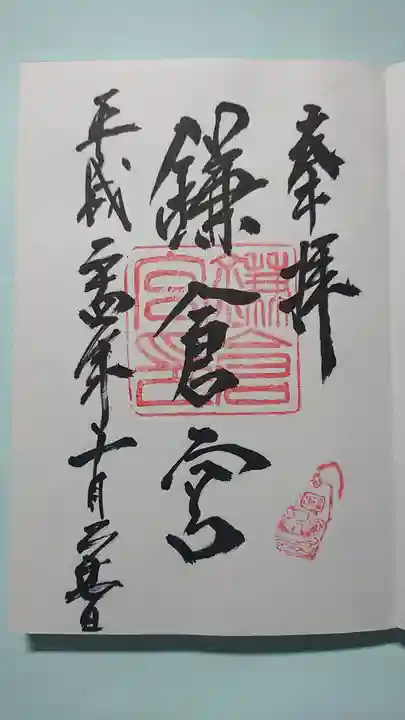 奉拝
鎌倉宮
鎌倉宮印
平成二十四年十月二 日